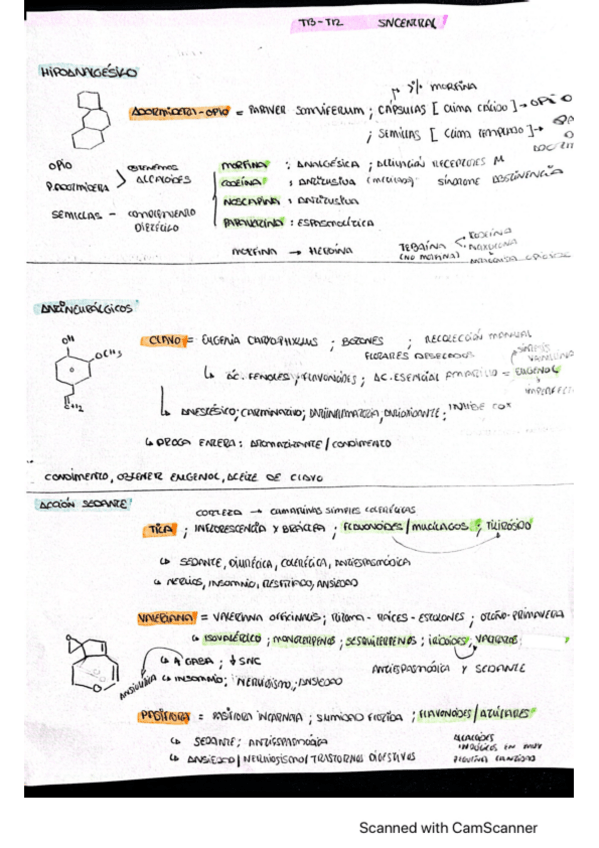 T13-T12 SNCENTRAL
HIPOANALGÉSICO
3% MORFINA
ADORMIDERA-OPIO = PAPAVER SOMNIFERUM ; CÁPSULAS [ Clima cálido ] → OPIO
; SEMILLAS [ Clima templado ] →
OPIO
P. ADORMIDERA
OBTENEMOS
ALCALOIDES
MORFINA : ANALGÉSICA ; ACTIVACIÓN RECEPTORES M
CODEÍNA : ANTITUSIVA SÍNDROME ABSTINENCIA
NOSCAPINA : ANTITUSIVA
SEMILLAS - CONDIMENTO
DIETÉTICO
PAPAVERINA : ESPASMOLÍTICA
MORFINA → HEROÍNA
TEBAÍNA
(NO MORFINA)
CODEÍNA
NALOXONA
ANTINEURÁLGICOS
OH
OCH3
CH2
CLAVO = EUGENIA CARYOPHYLLUS ; BOTONES ; RECOLECCIÓN MANUAL
FLORALES DESECADOS
↳ ÁC. FENOLES ; FLAVONOIDES ; AC. ESENCIAL AMARILLO = EUGENOL
SÍNTESIS
VAINILLINA
↳ ANESTÉSICO; CARMINATIVO; ANTIINFLAMATORIA; ANTIOXIDANTE; INHIBE COX
↳ DROGA ENTERA : AROMATIZANTE / CONDIMENTO
CONDIMENTO, OBTENER EUGENOL, ACEITE DE CLAVO
ACCIÓN SEDANTE
CORTEZA → CUMARINAS SIMPLES COLERÉTICAS
TILA ; INFLORESCENCIA Y BRÁCTEA ; FLAVONOIDES / MUCÍLAGOS ; TILIRÓSIDO
↳ SEDANTE, DIURÉTICA, COLERÉTICA, ANTIESPASMÓDICA
↳ NERVIOS, INSOMNIO, RESFRIADO, ANSIEDAD
VALERIANA = VALERIANA OFFICINALIS ; RIZOMA - RAÍCES - ESTOLONES ; OTOÑO-PRIMAVERA
↳ ISOVALÉRICO ; MONOTERPENOS ; SESQUITERPENOS ; IRIDOIDES ; VALTRATOS
↳ ↑ GABA ; ↓ SNC
ANTIESPASMÓDICA Y SEDANTE
↳ INSOMNIO ; NERVIOSISMO ; ANSIEDAD
O
PASIFLORA = PASIFLORA INCARNATA ; SUMIDAD FLORIDA ; FLAVONOIDES / AZÚCARES
↳ SEDANTE ; ANTIESPASMÓDICA
↳ ANSIEDAD / NERVIOSISMO / TRASTORNOS DIGESTIVOS
ALCALOIDES
INDÓLICOS EN MUY
PEQUEÑA CANTIDAD
Scanned with CamScanner